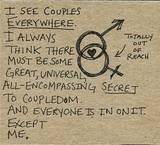 I SEE COUPLES
EVERYWHERE.
I ALWAYS
THINK THERE
MUST BE SOME
GREAT, UNIVERSAL
ALL-ENCOMPASSING SECRET
TO COUPLEDOM.
AND EVERYONE IS IN ON IT.
EXCEPT
ME.
TOTALLY
OUT OF
REACH